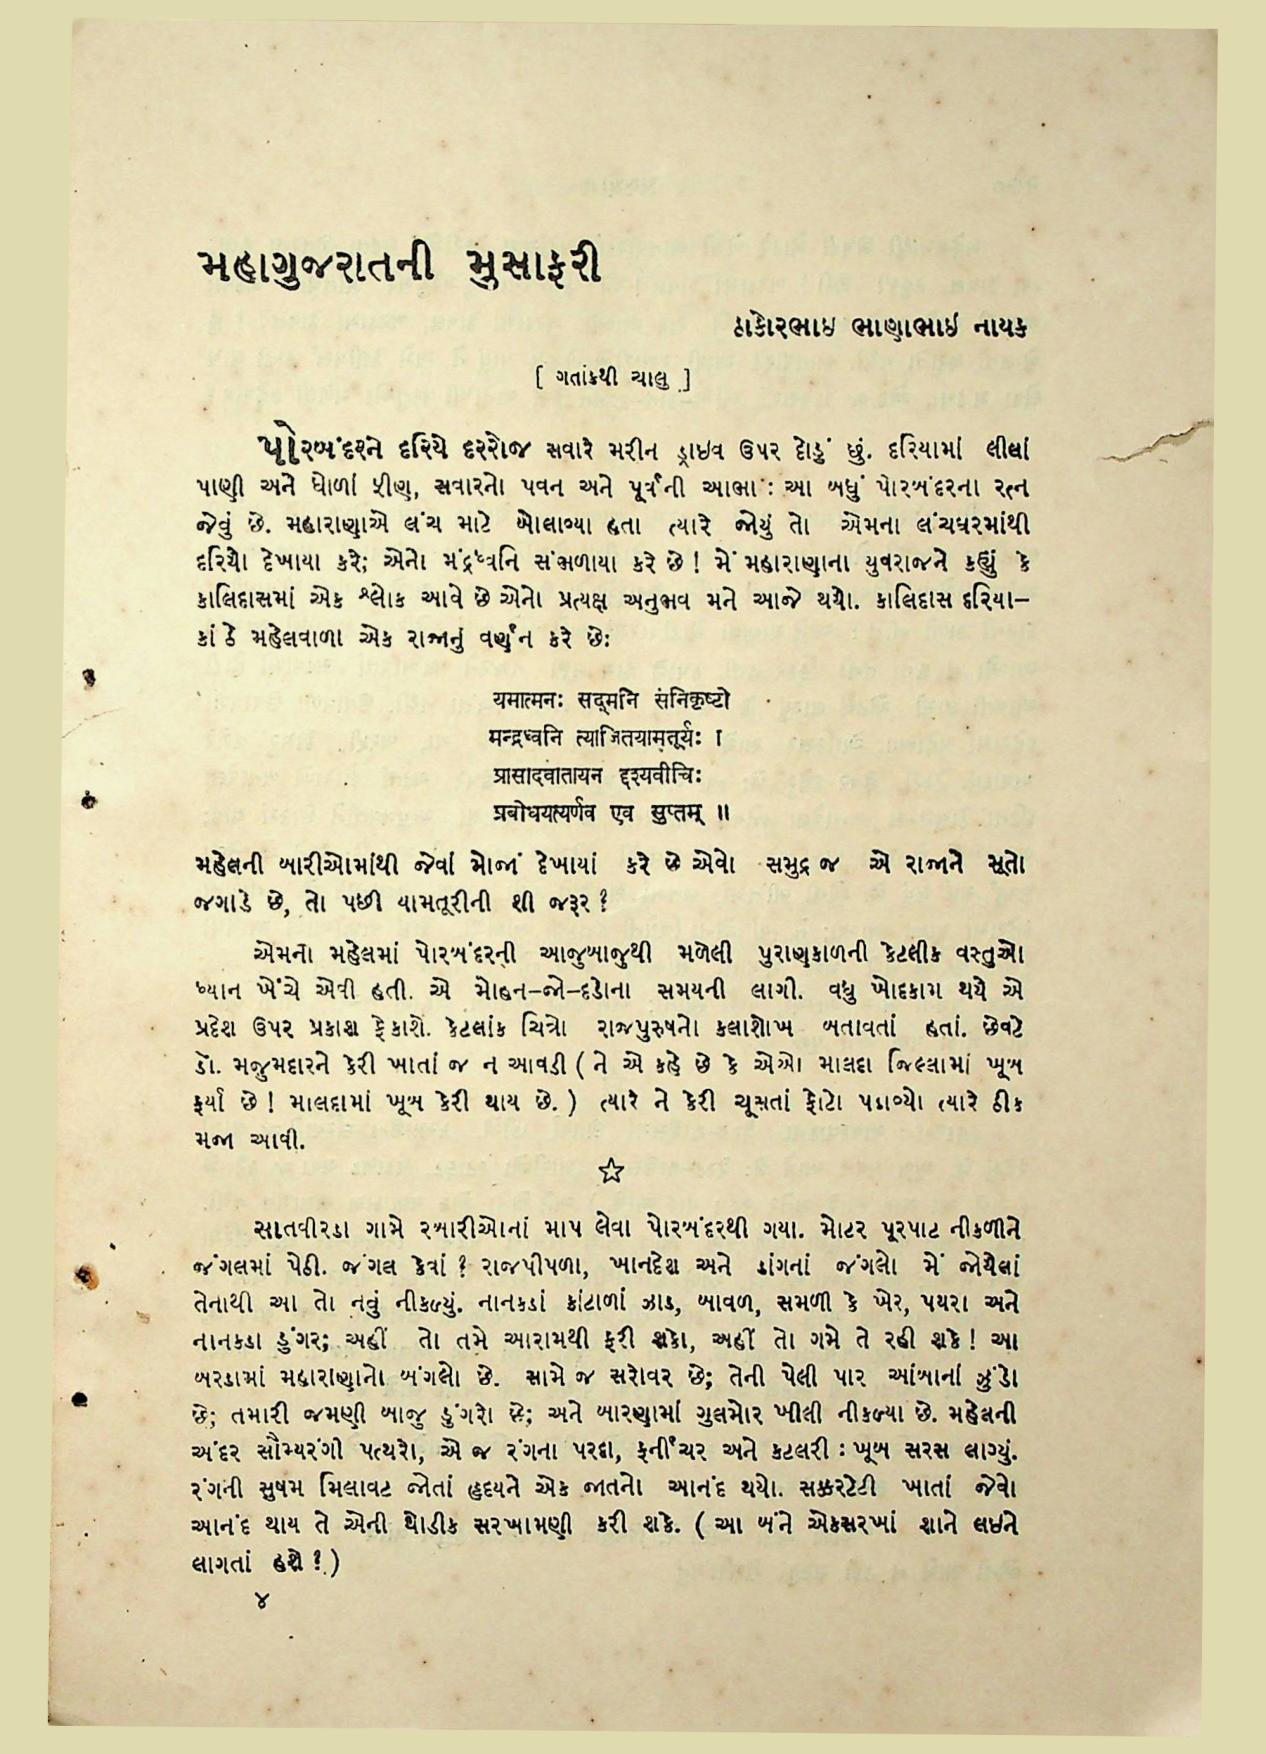 મહાગુજરાતની મુસાફરી
ઠાકોરભાઇ ભાણાભાઇ નાયક
[ ગતાંકથી ચાલુ ]
પોરબંદરને દરિયે દરરોજ સવારે મરીન ડ્રાઇવ ઉપર દોડું છું. દરિયામાં લીલાં
પાણી અને ધોળાં ફીણ, સવારનો પવન અને પૂર્વની આભા : આ બધું પોરબંદરના રત્ન
જેવું છે. મહારાણાએ લંચ માટે બોલાવ્યા હતા ત્યારે જોયું તો એમના લંચઘરમાંથી
દરિયો દેખાયા કરે; એનો મંદ્રધ્વનિ સંભળાયા કરે છે ! મેં મહારાણાના યુવરાજને કહ્યું કે
કાલિદાસમાં એક શ્લોક આવે છે એનો પ્રત્યક્ષ અનુભવ મને આજે થયો. કાલિદાસ દરિયા–
કાંઠે મહેલવાળા એક રાજાનું વર્ણન કરે છે:
यमात्मनः सद्मनि संनिकृष्टो
मन्द्रध्वनि त्याजितयामतूर्यः ।
प्रासादवातायन दृश्यवीचिः
प्रबोधयत्यर्णव एव सुप्तम् ॥
મહેલની બારીઓમાંથી જેવાં મોજાં દેખાયાં કરે છે એવો સમુદ્ર જ એ રાજાને સૂતો
જગાડે છે, તો પછી યામતૂરીની શી જરૂર ?
એમના મહેલમાં પોરબંદરની આજુબાજુથી મળેલી પુરાણકાળની કેટલીક વસ્તુઓ
ધ્યાન ખેંચે એવી હતી. એ મોહન–જો–દડોના સમયની લાગી. વધુ ખોદકામ થયે એ
પ્રદેશ ઉપર પ્રકાશ ફેંકાશે. કેટલાંક ચિત્રો રાજપુરુષનો કલાશોખ બતાવતાં હતાં. છેવટે
ડૉ. મજુમદારને કેરી ખાતાં જ ન આવડી ( ને એ કહે છે કે એઓ માલદા જિલ્લામાં ખૂબ
ફર્યા છે ! માલદામાં ખૂબ કેરી થાય છે. ) ત્યારે ને કેરી ચૂસતાં ફોટો પડાવ્યો ત્યારે ઠીક
મજા આવી.
☆
સાતવીરડા ગામે રબારીઓનાં માપ લેવા પોરબંદરથી ગયા. મોટર પૂરપાટ નીકળીને
જંગલમાં પેઠી. જંગલ કેવાં ? રાજપીપળા, ખાનદેશ અને ડાંગનાં જંગલો મેં જોયેલાં
તેનાથી આ તો નવું નીકળ્યું. નાનકડાં કાંટાળાં ઝાડ, બાવળ, સમળી કે ખેર, પથરા અને
નાનકડા ડુંગર; અહીં તો તમે આરામથી ફરી શકો, અહીં તો ગમે તે રહી શકે ! આ
બરડામાં મહારાણાનો બંગલો છે. સામે જ સરોવર છે; તેની પેલી પાર આંબાનાં ઝુંડો
છે; તમારી જમણી બાજુ ડુંગરો છે; અને બારણામાં ગુલમોર ખીલી નીકળ્યા છે. મહેલની
અંદર સૌમ્યરંગી પત્થરો, એ જ રંગના પરદા, ફર્નીચર અને કટલરી : ખૂબ સરસ લાગ્યું.
રંગની સુષમ મિલાવટ જોતાં હૃદયને એક જાતનો આનંદ થયો. સક્કરટેટી ખાતાં જેવો
આનંદ થાય તે એની થોડીક સરખામણી કરી શકે. ( આ બંને એકસરખાં શાને લઇને
લાગતાં હશે ? )
૪